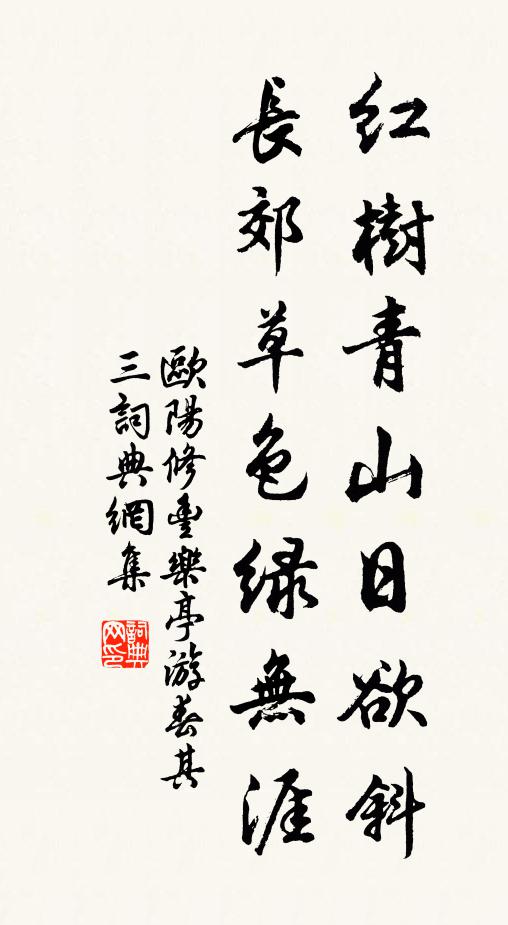 紅樹青山日欲斜
長郊草色緑無涯
歐陽修豐樂亭游春其
三詞典網集
詞典網印